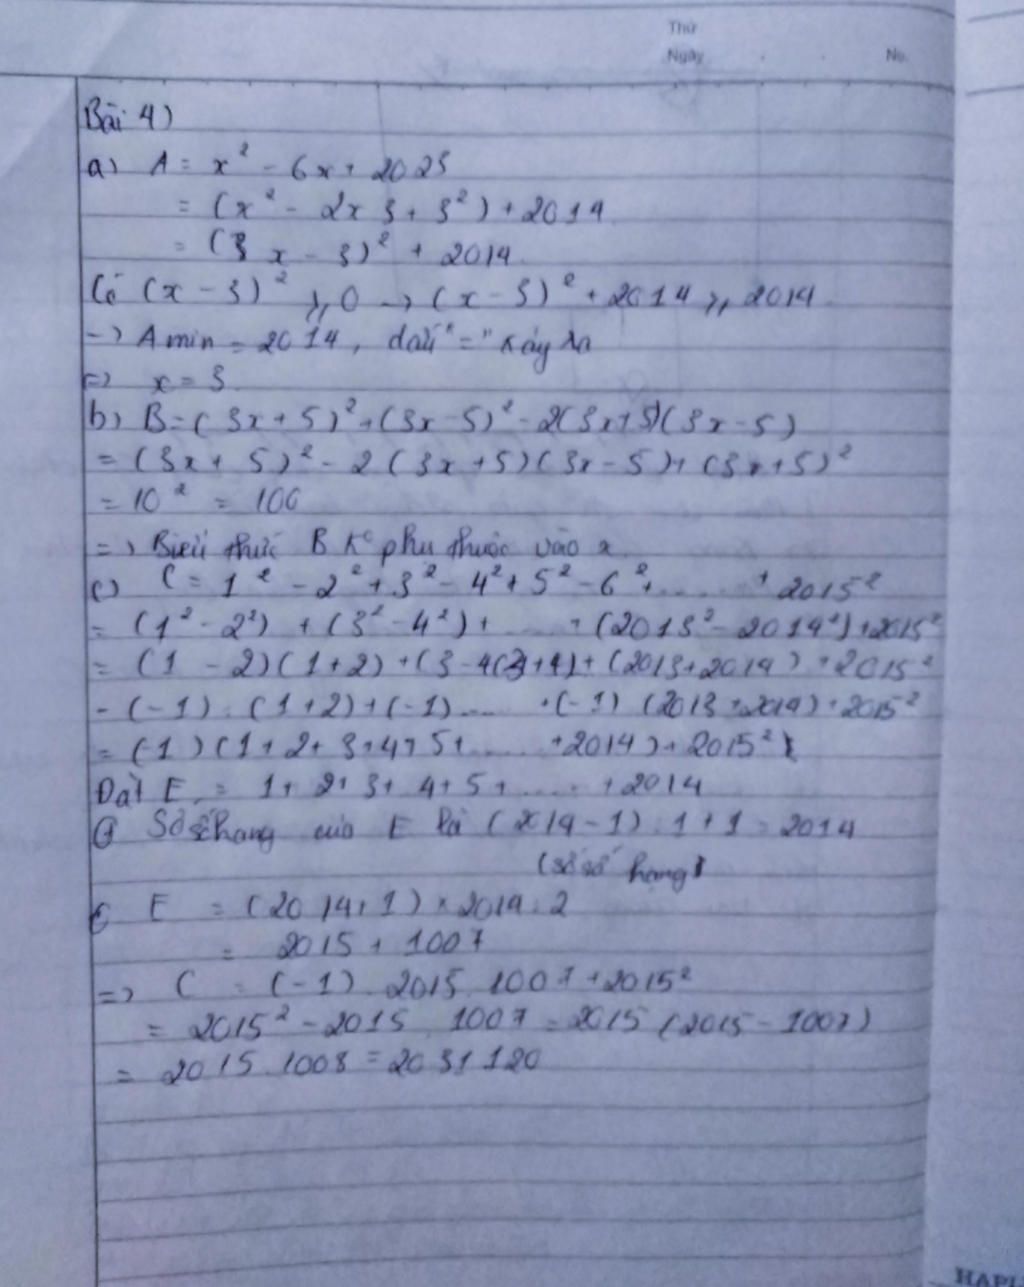 Thứ
Ngày No.
Bài 4)
a) A = x² - 6x + 2023
= (x² - 2x 3 + 3²) + 2014
= (3 x - 3)² + 2014
Có (x - 3)² ⩾ 0 → (x - 3)² + 2014 ⩾ 2014
→ A min = 2014, dấu "=" xảy ra
=> x = 3
b) B = (3x + 5)² + (3x - 5)² - 2(3x+5)(3x - 5)
= (3x + 5)² - 2 (3x + 5)(3x - 5) + (3x + 5)²
= 10² = 100
=> Biểu thức B k° phụ thuộc vào x
c) C = 1² - 2² + 3² - 4² + 5² - 6² + ...... + 2015²
= (1² - 2²) + (3² - 4²) + ..... + (2013² - 2014²) + 2015²
= (1 - 2)(1 + 2) + (3 - 4(3+4) + (2013 + 2014) + 2015²
= (-1) . (1 + 2) + (-1) ..... + (-1) (2013 + 2014) + 2015²
= (-1) (1 + 2 + 3 + 4 + 5 + ...... + 2014) + 2015²
Đặt E = 1 + 2 + 3 + 4 + 5 + ...... + 2014
Số số hạng của E là (2014 - 1) : 1 + 1 = 2014
(số số hạng)
E = (2014 + 1) × 2014 : 2
= 2015 + 1007
=> C = (-1) . 2015 . 1007 + 2015²
= 2015² - 2015 . 1007 = 2015 (2015 - 1007)
= 2015 . 1008 = 2031120